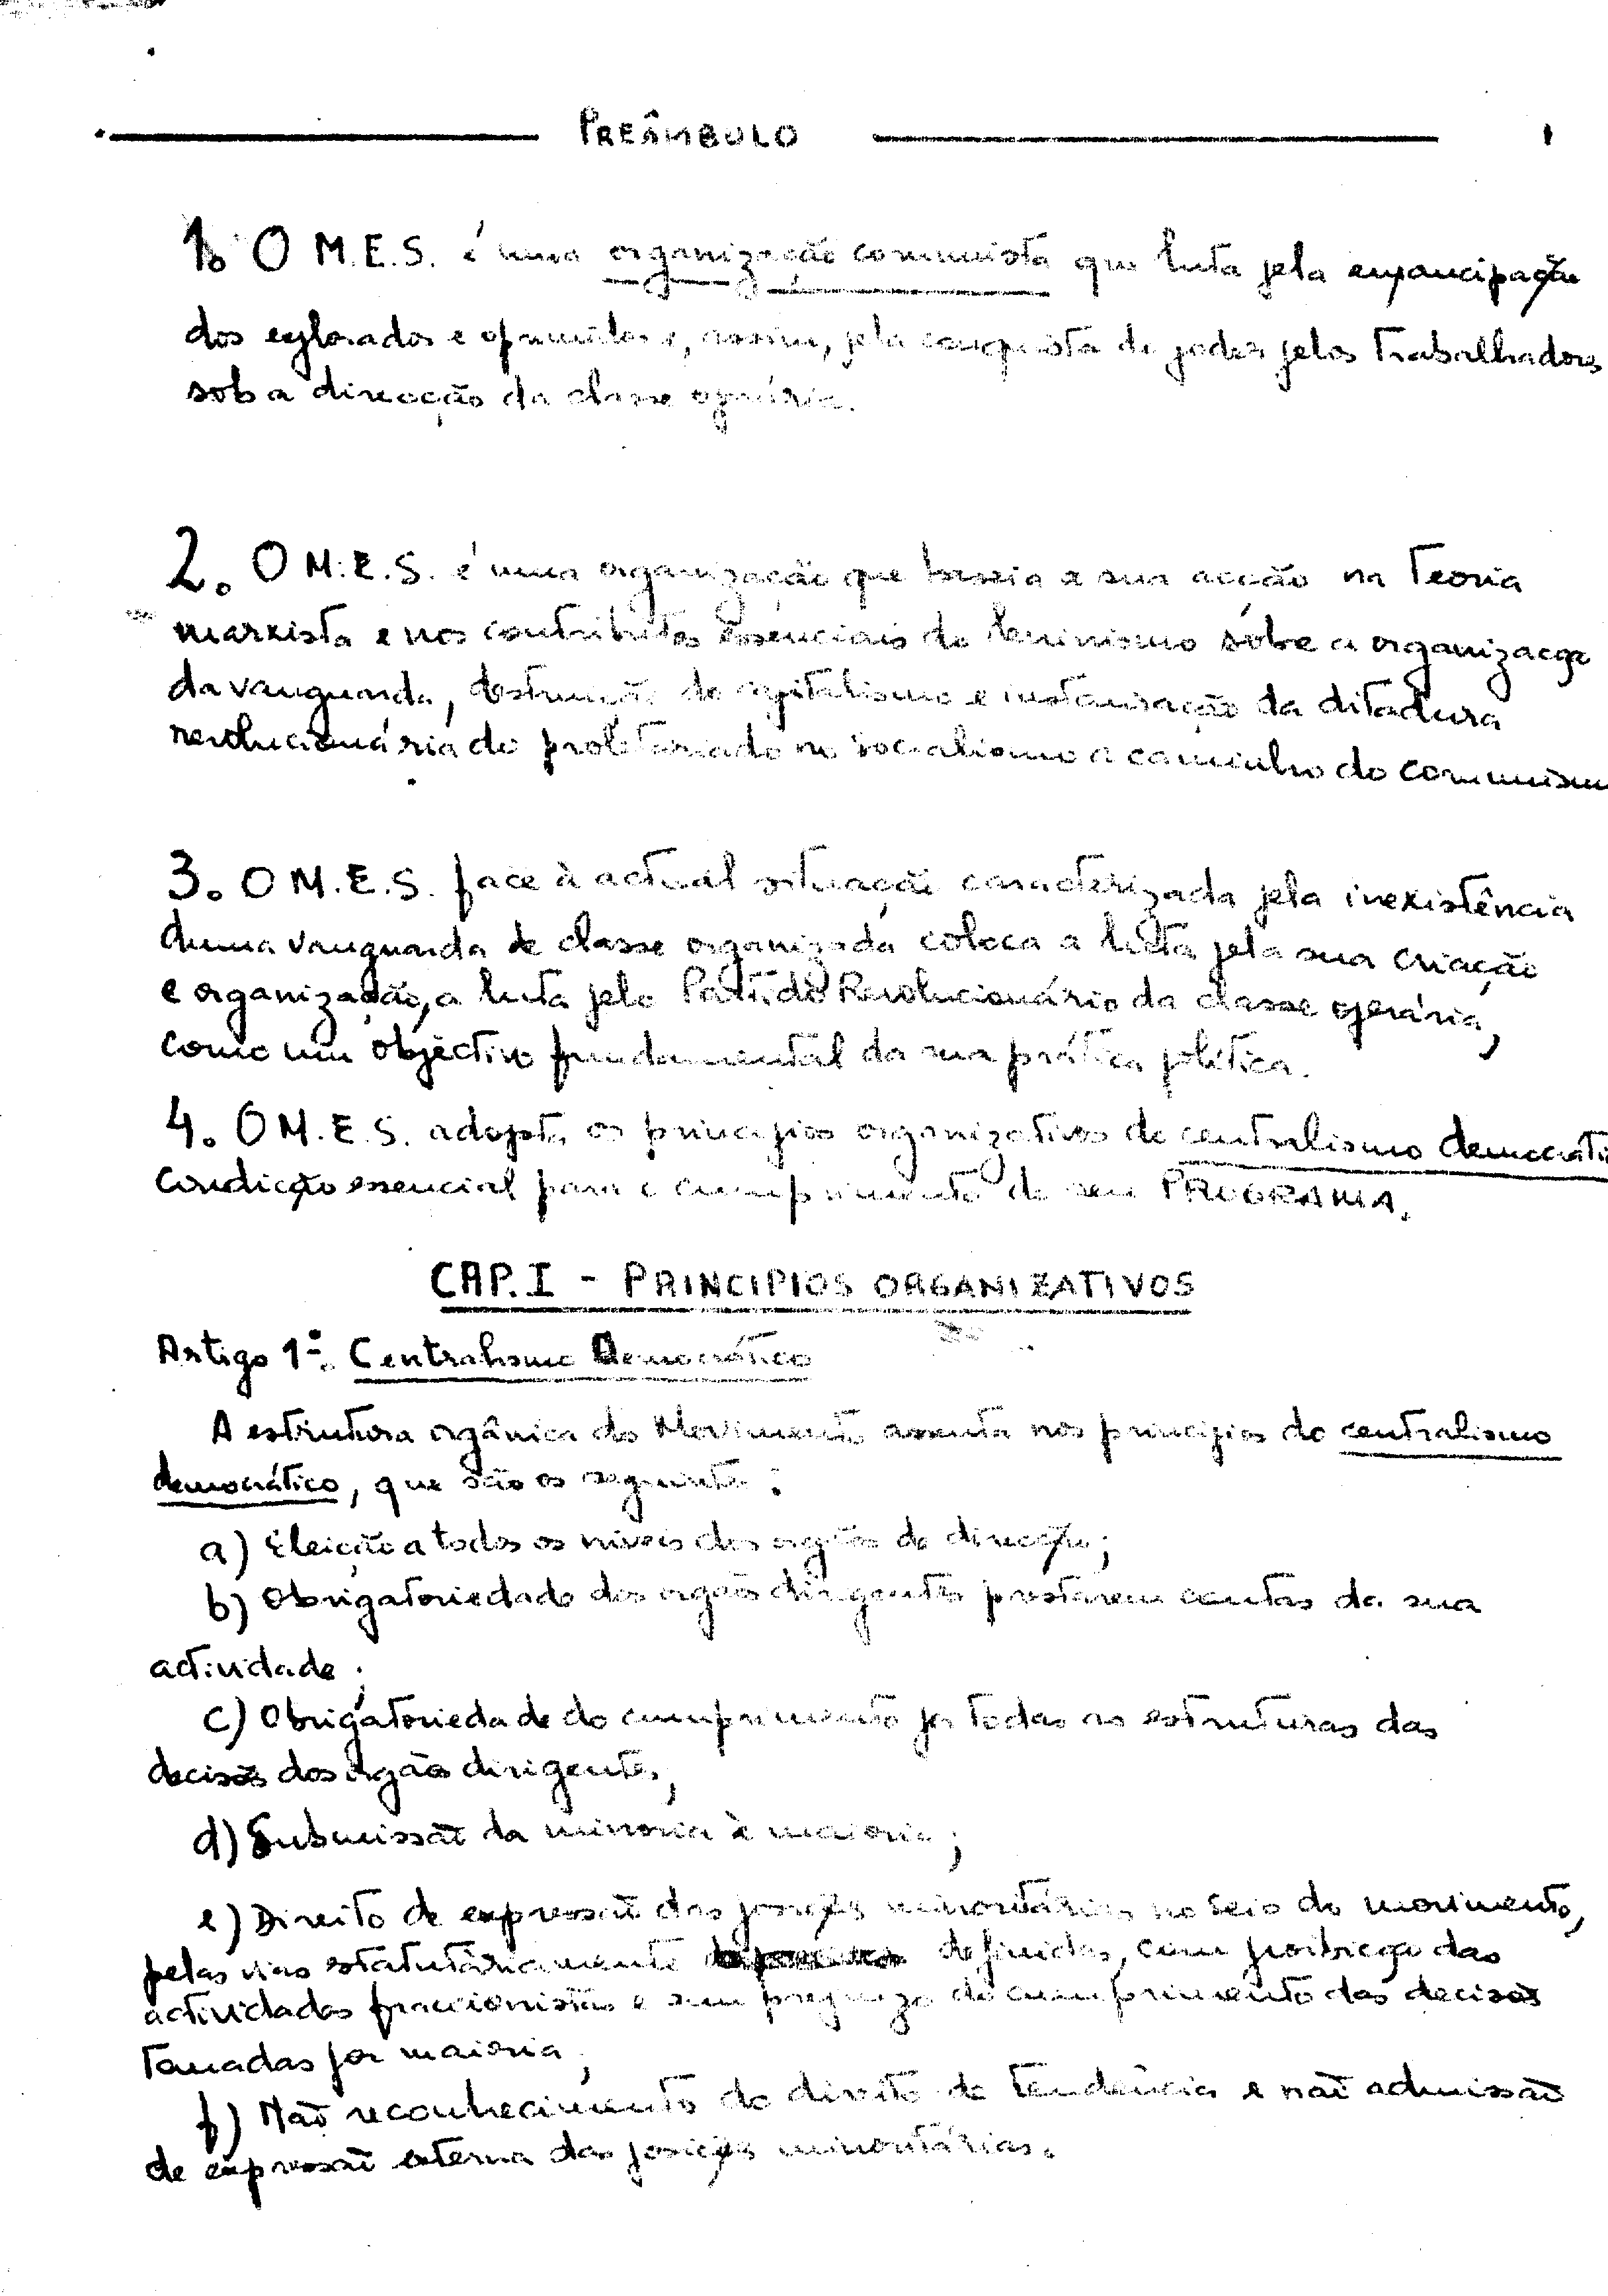 PREÂMBULO 1
1. O M.E.S. é uma organização comunista que luta pela emancipação
dos explorados e oprimidos e, assim, pela conquista do poder pelos trabalhadores
sob a direcção da classe operária.
2. O M.E.S. é uma organização que baseia a sua acção na teoria
marxista e nos contributos essenciais do leninismo sôbre a organização
da vanguarda, destruição do capitalismo e instauração da ditadura
revolucionária do proletariado no socialismo a caminho do comunism
3. O M.E.S. face à actual situação caracterizada pela inexistência
duma vanguarda de classe organizada coloca a luta pela sua criação
e organização, a luta pelo Partido Revolucionário da classe operária,
como um objectivo fundamental da sua prática política.
4. O M.E.S. adopta os principios organizativos do centralismo democráti
condicção essencial para o cumprimento do seu PROGRAMA.
CAP. I - PRINCIPIOS ORGANIZATIVOS
Artigo 1º. Centralismo Democrático
A estrutura orgânica do Movimento assenta nos principios do centralismo
democrático, que são os seguintes:
a) Eleição a todos os niveis dos orgãos de direcção;
b) Obrigatoriedade dos orgãos dirigentes prestarem contas da sua
actividade;
c) Obrigatoriedade do cumprimento por todas as estruturas das
decisões dos orgãos dirigentes;
d) Submissão da minoria à maioria;
e) Direito de expressão das posições minoritárias no seio do movimento,
pelas vias estatutáriamente definidas, com proibição das
actividades fraccionistas e sem prejuizo do cumprimento das decisões
tomadas por maioria;
f) Não reconhecimento do direito de tendência e não admissão
de expressão externa das posições minoritárias.